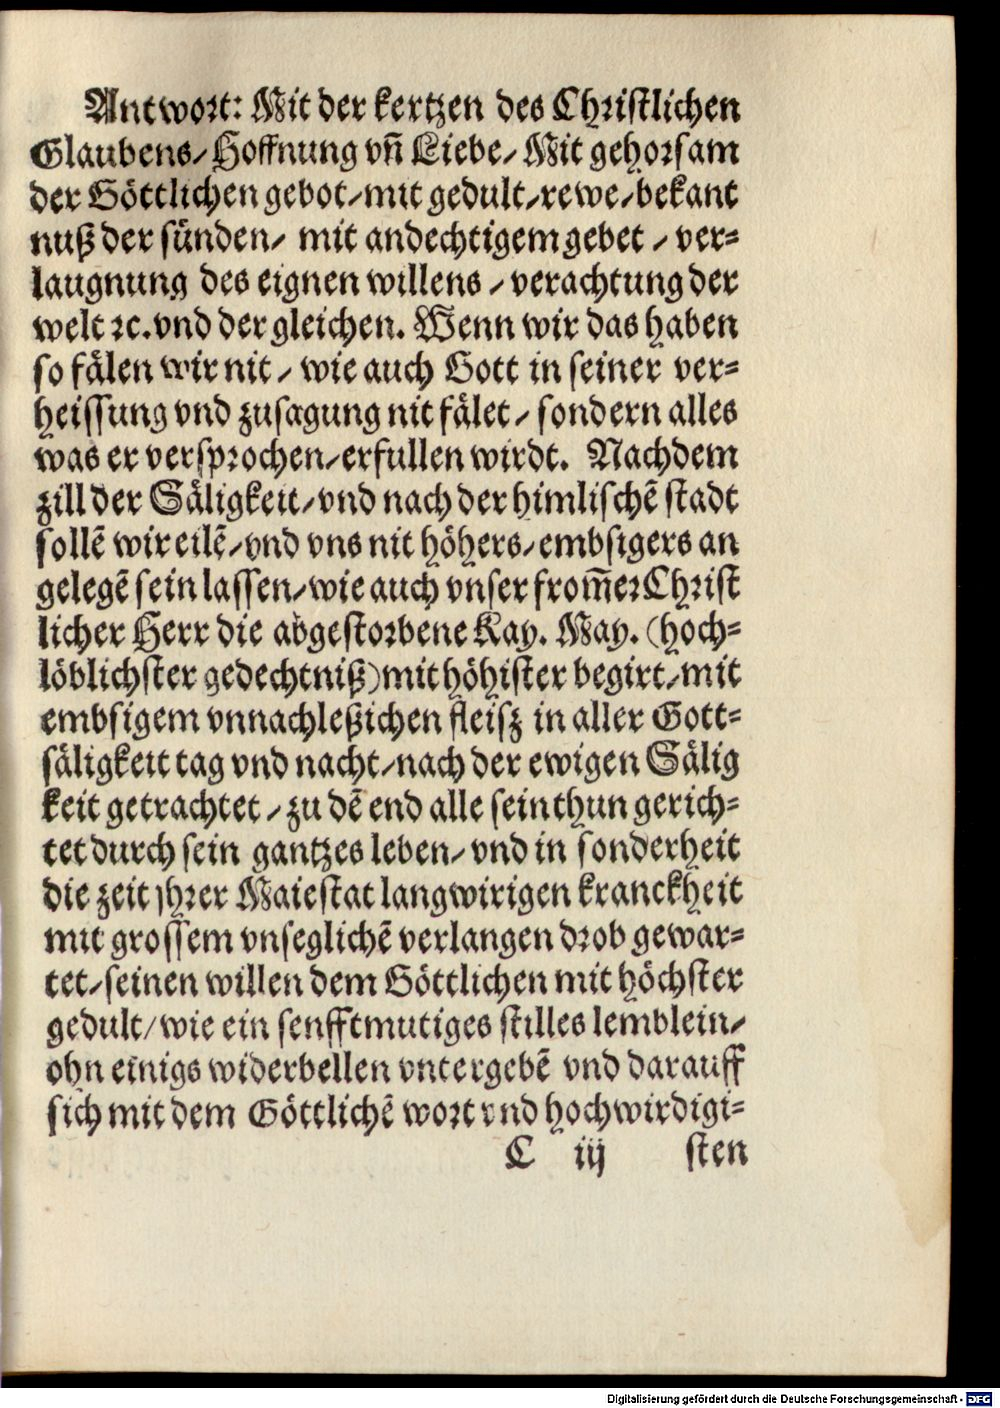 Antwort: Mit der kertzen des Christlichen
Glaubens/ Hoffnung vñ Liebe/ Mit gehorsam
der Göttlichen gebot/ mit gedult/ rewe/ bekant
nuß der sünden/ mit andechtigem gebet / ver-
laugnung des eignen willens / verachtung der
welt ꝛc. vnd der gleichen. Wenn wir das haben
so fälen wir nit / wie auch Gott in seiner ver-
heissung vnd zusagung nit fälet / sondern alles
was er versprochen/ erfullen wirdt. Nach dem
zill der Säligkeit/ vnd nach der himlischē stadt
sollē wir eilē/ vnd vns nit höhers/ embsigers an
gelegē sein lassen/ wie auch vnser from̃er Christ
licher Herr die abgestorbene Kay. May. (hoch-
löblichster gedechtniß) mit höhister begirt/ mit
embsigem vnnachleßichen fleisz in aller Gott-
säligkeit tag vnd nacht/ nach der ewigen Sälig
keit getrachtet / zu dē end alle sein thun gerich-
tet durch sein gantzes leben/ vnd in sonderheit
die zeit jhrer Maiestat langwirigen kranckheit
mit grossem vnseglichē verlangen drob gewar-
tet/ seinen willen dem Göttlichen mit höchster
gedult/ wie ein senfftmutiges stilles lemblein/
ohn einigs widerbellen vntergebē vnd darauff
sich mit dem Göttlichē wort vnd hochwirdigi-
C iij sten
Digitalisierung gefördert durch die Deutsche Forschungsgemeinschaft - DFG